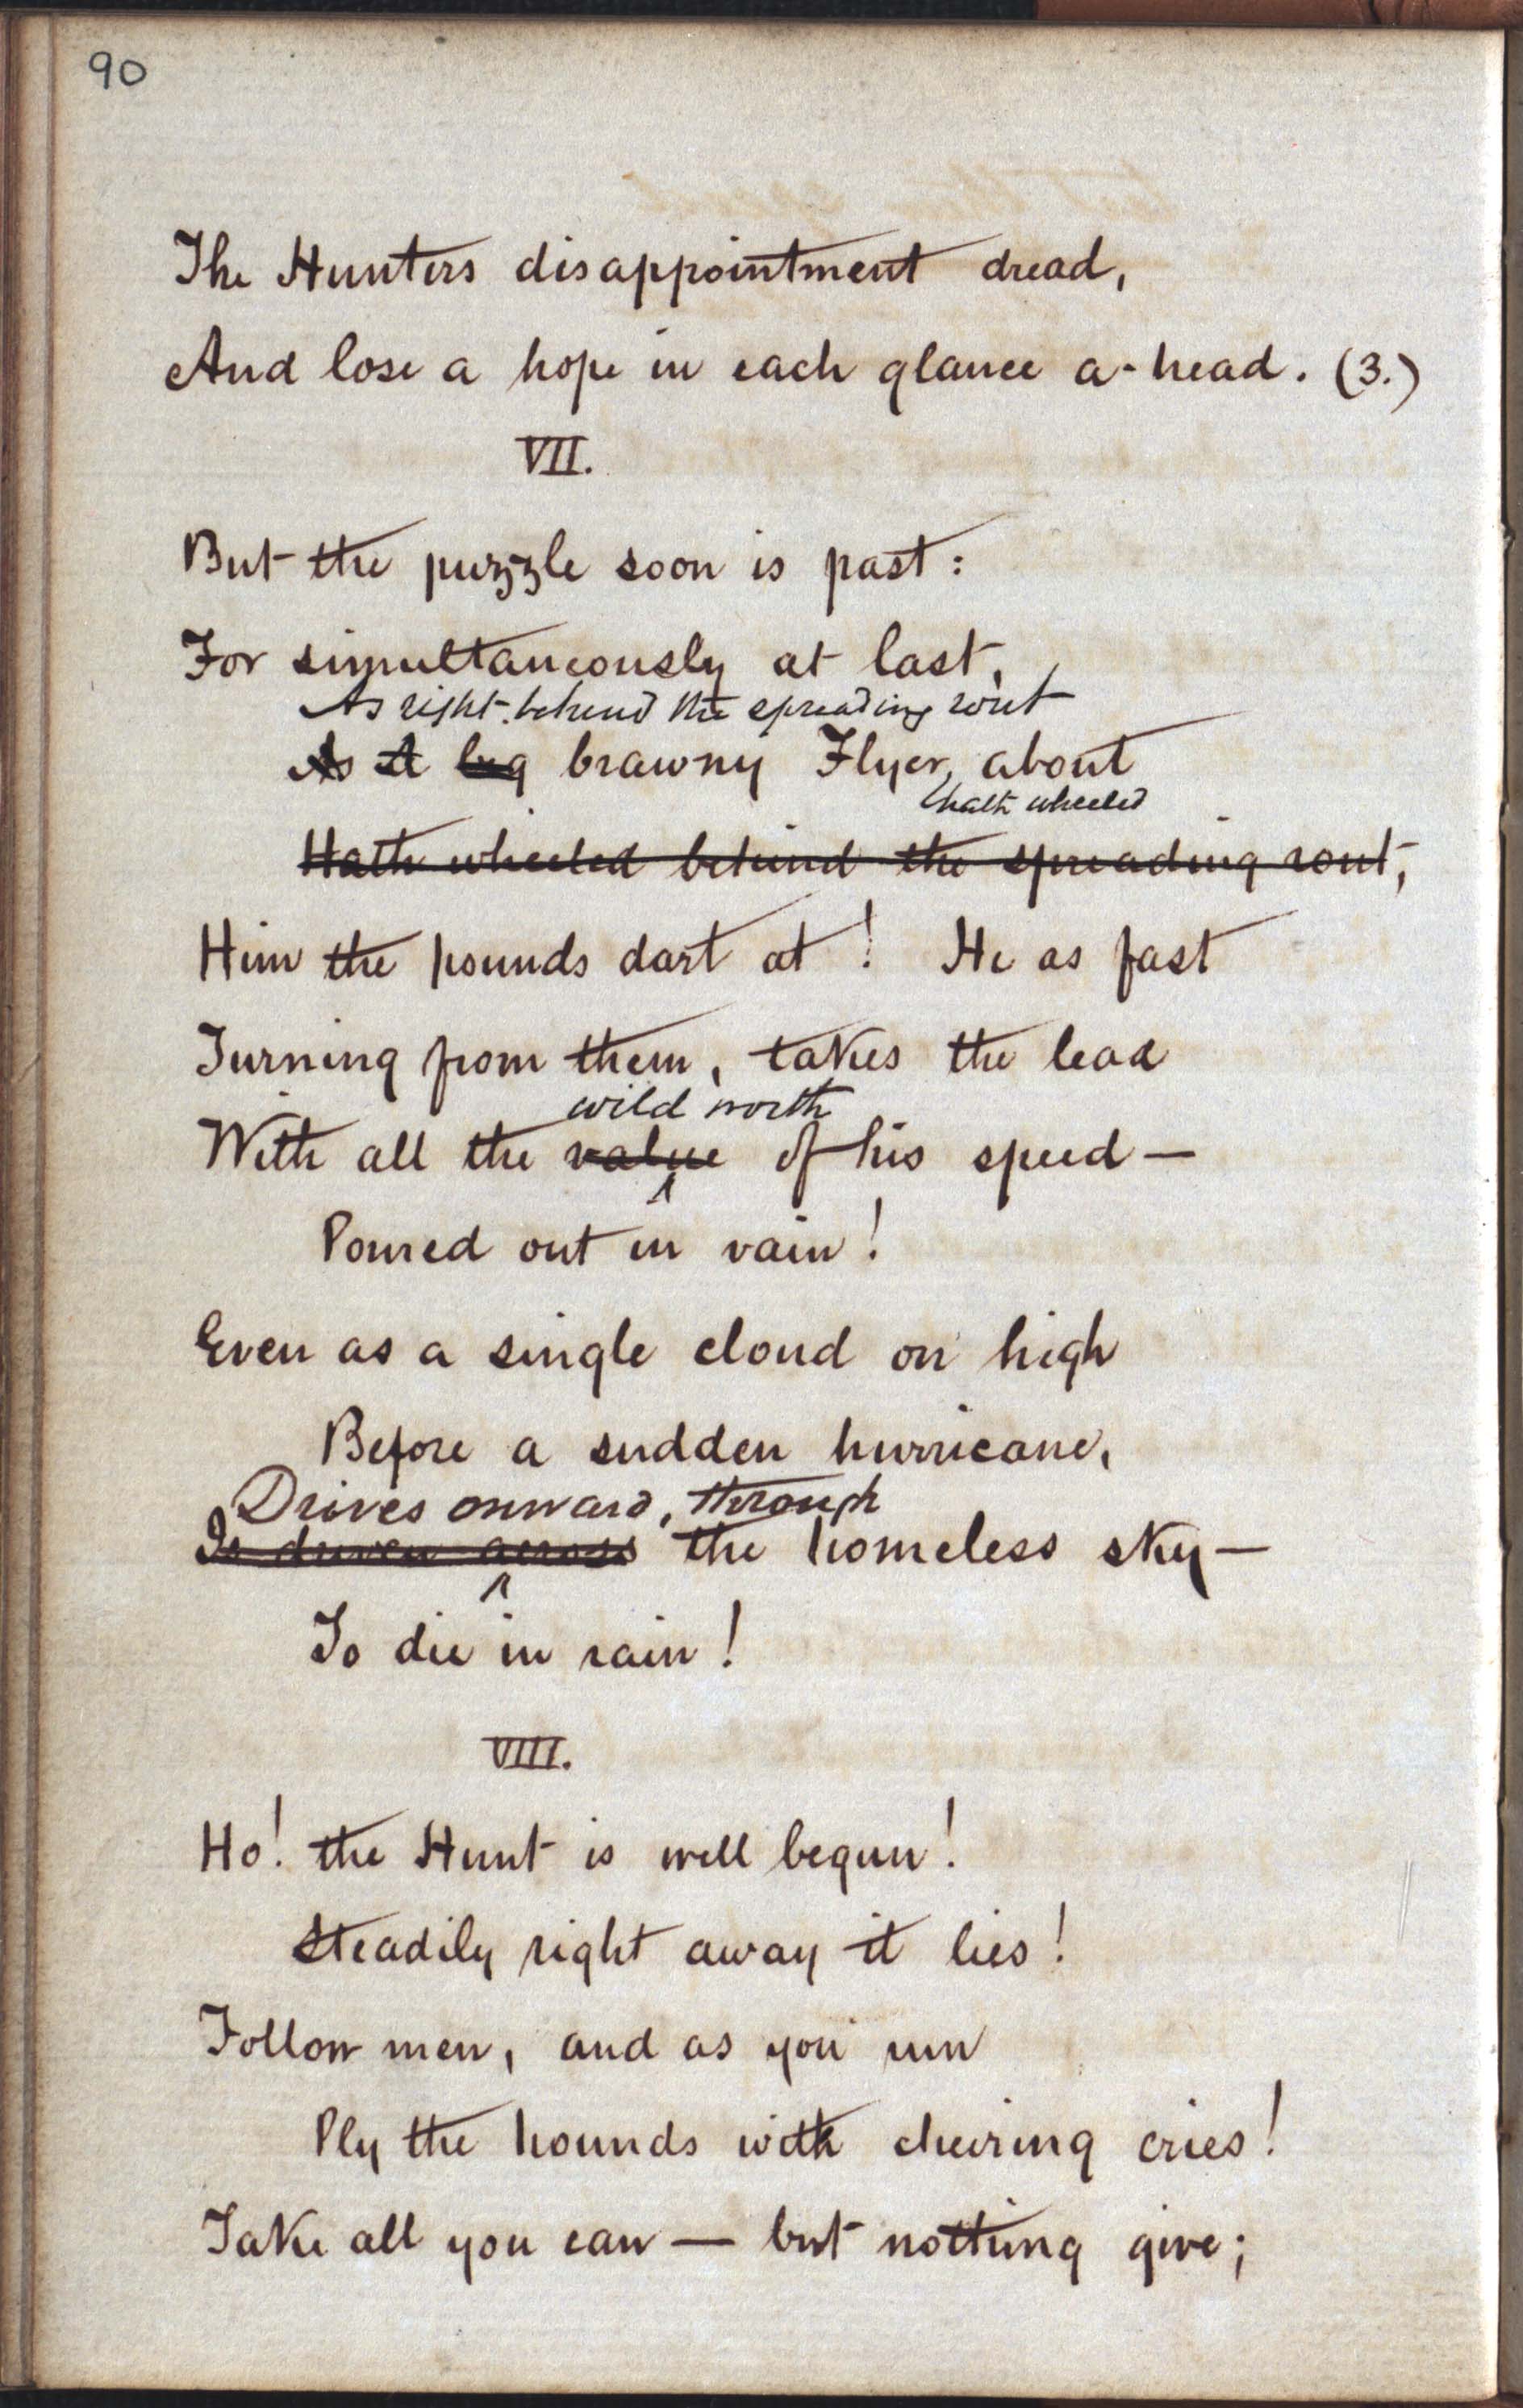 90
The Hunters disappointment dread,
And lose a hope in each glance a-head. (3.)
VII.
But the puzzle soon is past:
For simultaneously at last,
As right behind the spreading rout
As A big brawny Flyer, about
hath wheeled
Hath wheeled behind the spreading rout,
Him the hounds dart at! He as fast
Turning from them, takes the lead
wild worth
With all the value of his speed—
Poured out in vain!
Even as a single cloud on high
Before a sudden hurricane,
Drives onward, through
Is driven across the homeless sky—
To die in rain!
VIII.
Ho! the Hunt is well begun!
Steadily right away it lies!
Follow men, and as you run
Ply the hounds with cheering cries!
Take all you can — but nothing give;